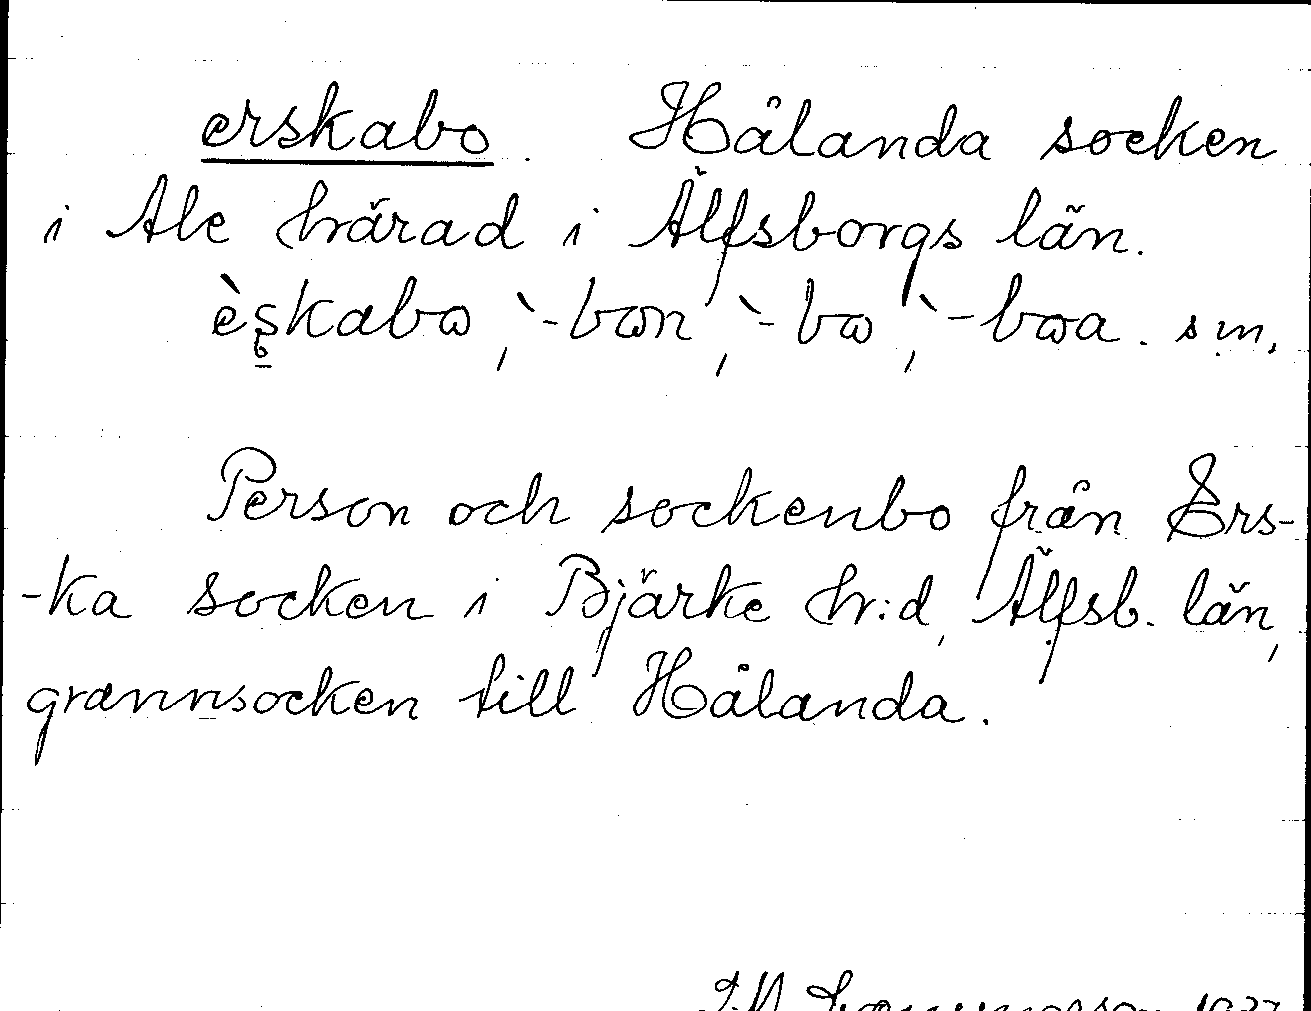 erskabo. Hålanda socken
i Ale härad i Älfsborgs län.
èskabo, `-bon, `-bo, `-boa. sm.
Person och sockenbo från Ers-
-ka socken i Bjärke hr:d, Älfsb. län,
grannsocken till Hålanda.